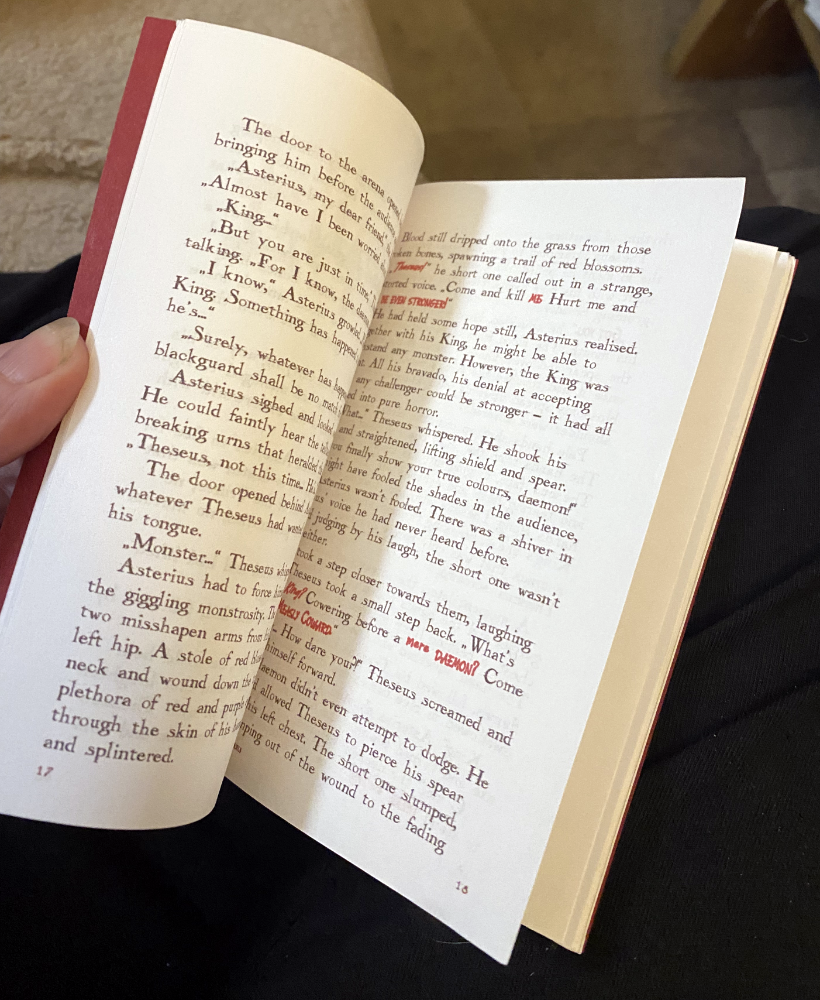 The door to the arena opened
bringing him before the audience
„Asterius, my dear friend
„Almost have I been worried
„King...“
„But you are just in time,“
talking. „For I know, the
„I know,“ Asterius growled.
King. Something has happened
he's...“
„Surely, whatever has
blackguard shall be no match
Asterius sighed and looked
He could faintly hear the
breaking urns that heralded
„Theseus, not this time.
The door opened behind
whatever Theseus had
his tongue.
„Monster...“ Theseus
Asterius had to force
the giggling monstrosity.
two misshapen arms from
left hip. A stole of red
neck and wound down the
plethora of red and purple
through the skin of his
and splintered.
17
Blood still dripped onto the grass from those
bones, spawning a trail of red blossoms.
he short one called out in a strange,
voice. „Come and kill ME Hurt me and
BE EVEN STRONGER!“
He had held some hope still, Asterius realised.
with his King, he might be able to
any monster. However, the King was
All his bravado, his denial at accepting
any challenger could be stronger – it had all
into pure horror.
Theseus whispered. He shook his
and straightened, lifting shield and spear.
you finally show your true colours, daemon!“
might have fooled the shades in the audience,
Asterius wasn't fooled. There was a shiver in
voice he had never heard before.
judging by his laugh, the short one wasn't
either.
took a step closer towards them, laughing
Theseus took a small step back. „What's
King? Cowering before a mere DAEMON? Come
MEASLY COWARD.“
How dare you?!“ Theseus screamed and
himself forward.
daemon didn't even attempt to dodge. He
allowed Theseus to pierce his spear
his left chest. The short one slumped,
out of the wound to the fading
18